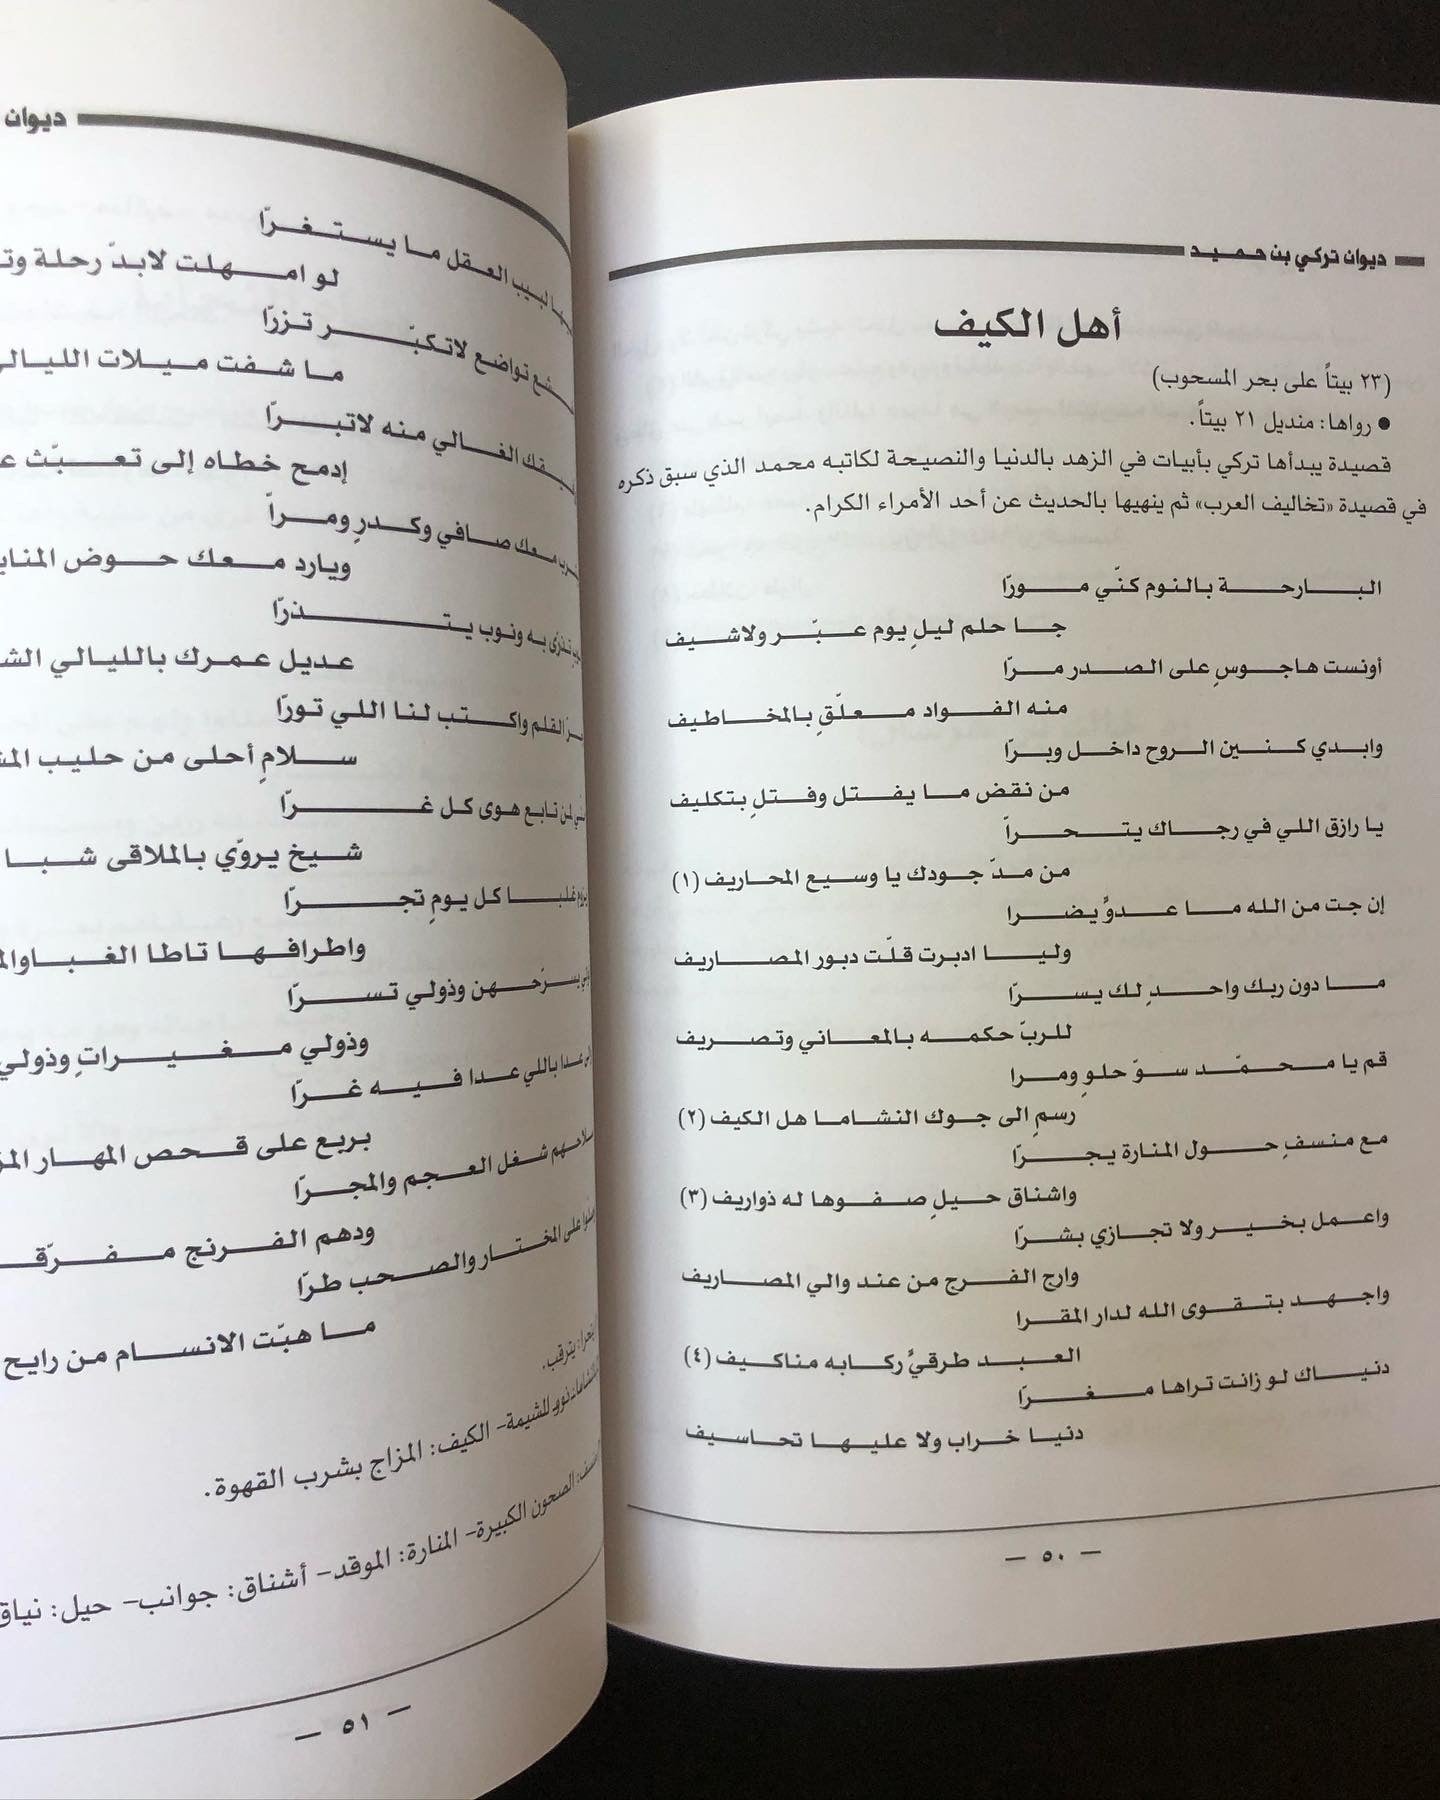 ديوان تركي بن حميد
أهل الكيف
(٢٣ بيتاً على بحر المسحوب)
● رواها: منديل ٢١ بيتاً.
قصيدة يبدأها تركي بأبيات في الزهد بالدنيا والنصيحة لكاتبه محمد الذي سبق ذكره
في قصيدة «تخاليف العرب» ثم ينهيها بالحديث عن أحد الأمراء الكرام.
البارحة بالنوم كنّي مورّا
جا حلم ليلٍ يوم عبّر ولاشيف
أونست هاجوسٍ على الصدر مرّا
منه الفواد معلّقٍ بالمخاطيف
وابدي كنين الروح داخل وبرّا
من نقض ما يفتل وفتلٍ بتكليف
يا رازق اللي في رجاك يتحراّ
من مدّ جودك يا وسيع المحاريف (١)
إن جت من الله ما عدوٍّ يضرا
وليا ادبرت قلّت دبور المصاريف
ما دون ربك واحدٍ لك يسرّا
للربّ حكمه بالمعاني وتصريف
قم يا محمّد سوّ حلوٍ ومرا
رسمٍ الى جوك النشاما هل الكيف (٢)
مع منسفٍ حول المنارة يجرّا
واشناق حيلٍ صفوها له ذواريف (٣)
واعمل بخير ولا تجازي بشرّا
وارج الفرج من عند والي المصاريف
واجهد بتقوى الله لدار المقرا
العبد طرقيٍّ ركابه مناكيف (٤)
دنياك لو زانت تراها مغرّا
دنيا خراب ولا عليها تحاسيف
— ٥٠ —
ديوان
لبيب العقل ما يستغرّا
لو امهلت لابدّ رحلة
تواضع لاتكبّر تزرّا
ما شفت ميلات الليالي
الغالي منه لاتبرّا
إدمح خطاه إلى تعبّث
معك صافي وكدرٍ ومراّ
ويارد معك حوض
تذرى به ونوب يتذرّا
عديل عمرك بالليالي
القلم واكتب لنا اللي تورّا
سلامٍ أحلى من حليب
تابع هوى كل غرّا
شيخ يروّي بالملاقى
كل يومٍ تجرّا
واطرافها تاطا
يسرّحهن وذولي تسرّا
وذولي مغيراتٍ وذولي
عدا باللي عدا فيه غرّا
بربع على قحص المهار
شغل العجم والمجرّا
ودهم الفرنج
على المختار والصحب طرّا
ما هبّت الانسام من رايح
يترقب.
للشيمة- الكيف: المزاج بشرب القهوة.
الصحون الكبيرة- المنارة: الموقد- أشناق: جوانب- حيل: نياق
— ٥١ —